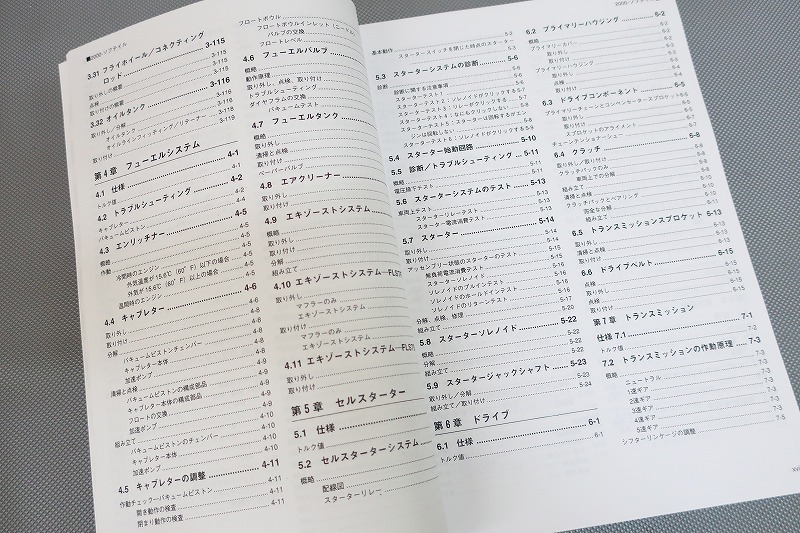 ■2000-ソフテイル
3.31 フライホイール／コネクティング
ロッド 3-115
取り外しの概要 3-115
点検 3-115
取り付けの概要 3-116
3.32 オイルタンク 3-118
取り外し／分解 3-118
オイルタンク 3-118
オイルラインフィッティング／リテーナー 3-119
取り付け
第4章 フューエルシステム
4.1 仕様 4-1
トルク値 4-1
4.2 トラブルシューティング 4-2
キャブレター 4-2
バキュームピストン 4-4
4.3 エンリッチナー 4-5
概略 4-5
作動 4-5
冷間時のエンジン 4-5
外気温度が 15.6℃（60°F）以下の場合 4-5
外気が 15.6℃（60°F）以上の場合 4-5
温間時のエンジン 4-5
4.4 キャブレター 4-6
取り外し 4-6
取り付け 4-8
分解 4-8
バキュームピストンチェンバー 4-8
キャブレター本体 4-8
加速ポンプ 4-9
清掃と点検 4-9
バキュームピストンの構成部品 4-9
キャブレター本体の構成部品 4-9
フロートの交換 4-9
加速ポンプ 4-10
組み立て 4-10
バキュームピストンのチェンバー 4-10
キャブレター本体 4-10
加速ポンプ 4-10
4.5 キャブレターの調整 4-11
作動チェック―バキュームピストン 4-11
開き動作の検査 4-11
閉まり動作の検査 4-11
フロートボウル
フロートボウルインレット（ニードル）
バルブの交換
フロートレベル
4.6 フューエルバルブ
概略
動作原理
取り外し、点検、取り付け
トラブルシューティング
ダイヤフラムの交換
バキュームテスト
4.7 フューエルタンク
概略
取り外し
清掃と点検
取り付け
ベーパーバルブ
4.8 エアクリーナー
取り外し
取り付け
4.9 エキゾーストシステム
概略
取り外し
取り付け
分解
組み立て
4.10 エキゾーストシステム―FLSTF
取り外し
マフラーのみ
エキゾーストシステム
取り付け
マフラーのみ
エキゾーストシステム
4.11 エキゾーストシステム―FLST
取り外し
取り付け
第5章 セルスターター
5.1 仕様
トルク値
5.2 セルスターターシステム
概略
配線図
スターターリレー
基本動作
スタータースイッチを閉じた時点のスターター 5-2
5.3 スターターシステムの診断 5-6
診断 5-6
診断に関する注意事項 5-6
スターターテスト 5-6
スターターテスト2：ソレノイドがクリックする 5-7
スターターテスト3：リレーがクリックする 5-8
スターターテスト4：なにもクリックしない 5-8
スターターテスト5：スターターは回転するがエン
ジンは回転しない 5-8
スターターテスト6：ソレノイドがクリックする 5-8
5.4 スターター始動回路 5-10
5.5 診断／トラブルシューティング 5-11
概略 5-11
電圧降下テスト 5-11
5.6 スターターシステムのテスト 5-13
車両上テスト 5-13
スターターリレーテスト 5-13
スターター電流消費テスト 5-13
5.7 スターター 5-14
取り外し 5-14
取り付け 5-14
アッセンブリー状態のスターターのテスト 5-15
無負荷電流消費テスト 5-15
スターターソレノイド 5-15
ソレノイドのプルインテスト 5-16
ソレノイドのホールドインテスト 5-16
ソレノイドのリターンテスト 5-16
分解、点検、修理 5-16
組み立て 5-20
5.8 スターターソレノイド 5-22
概略 5-22
分解 5-22
組み立て 5-22
5.9 スタータージャックシャフト 5-23
取り外し／分解 5-23
組み立て／取り付け 5-24
第6章 ドライブ
6.1 仕様 6-1
トルク値 6-1
2000-ソフテイル
6.2 プライマリーハウジング 6-2
概略 6-2
プライマリーカバー 6-2
取り外し 6-2
取り付け 6-2
プライマリーハウジング 6-3
取り外し 6-3
点検 6-4
取り付け 6-4
6.3 ドライブコンポーネント 6-5
プライマリーチェーンとコンペンセータースプロケット 6-5
取り外し 6-5
取り付け 6-7
スプロケットのアライメント 6-7
チェーンテンショナーシュー 6-7
6.4 クラッチ 6-8
取り外し／取り付け 6-8
クラッチパックのみ 6-8
車両上での分解 6-8
組み立て 6-9
清掃と点検 6-10
クラッチパックとベアリング 6-10
完全な分解 6-10
組み立て 6-11
6.5 トランスミッションスプロケット 6-13
取り外し 6-13
清掃と点検 6-13
取り付け 6-13
6.6 ドライブベルト 6-15
点検 6-15
取り外し 6-15
点検 6-15
取り付け 6-15
第7章 トランスミッション
仕様 7.1 7-1
トルク値 7-2
7.2 トランスミッションの作動原理 7-3
概略 7-3
ニュートラル 7-3
1速ギア 7-3
2速ギア 7-3
3速ギア 7-3
4速ギア 7-3
5速ギア 7-3
シフターリンケージの調整 7-5